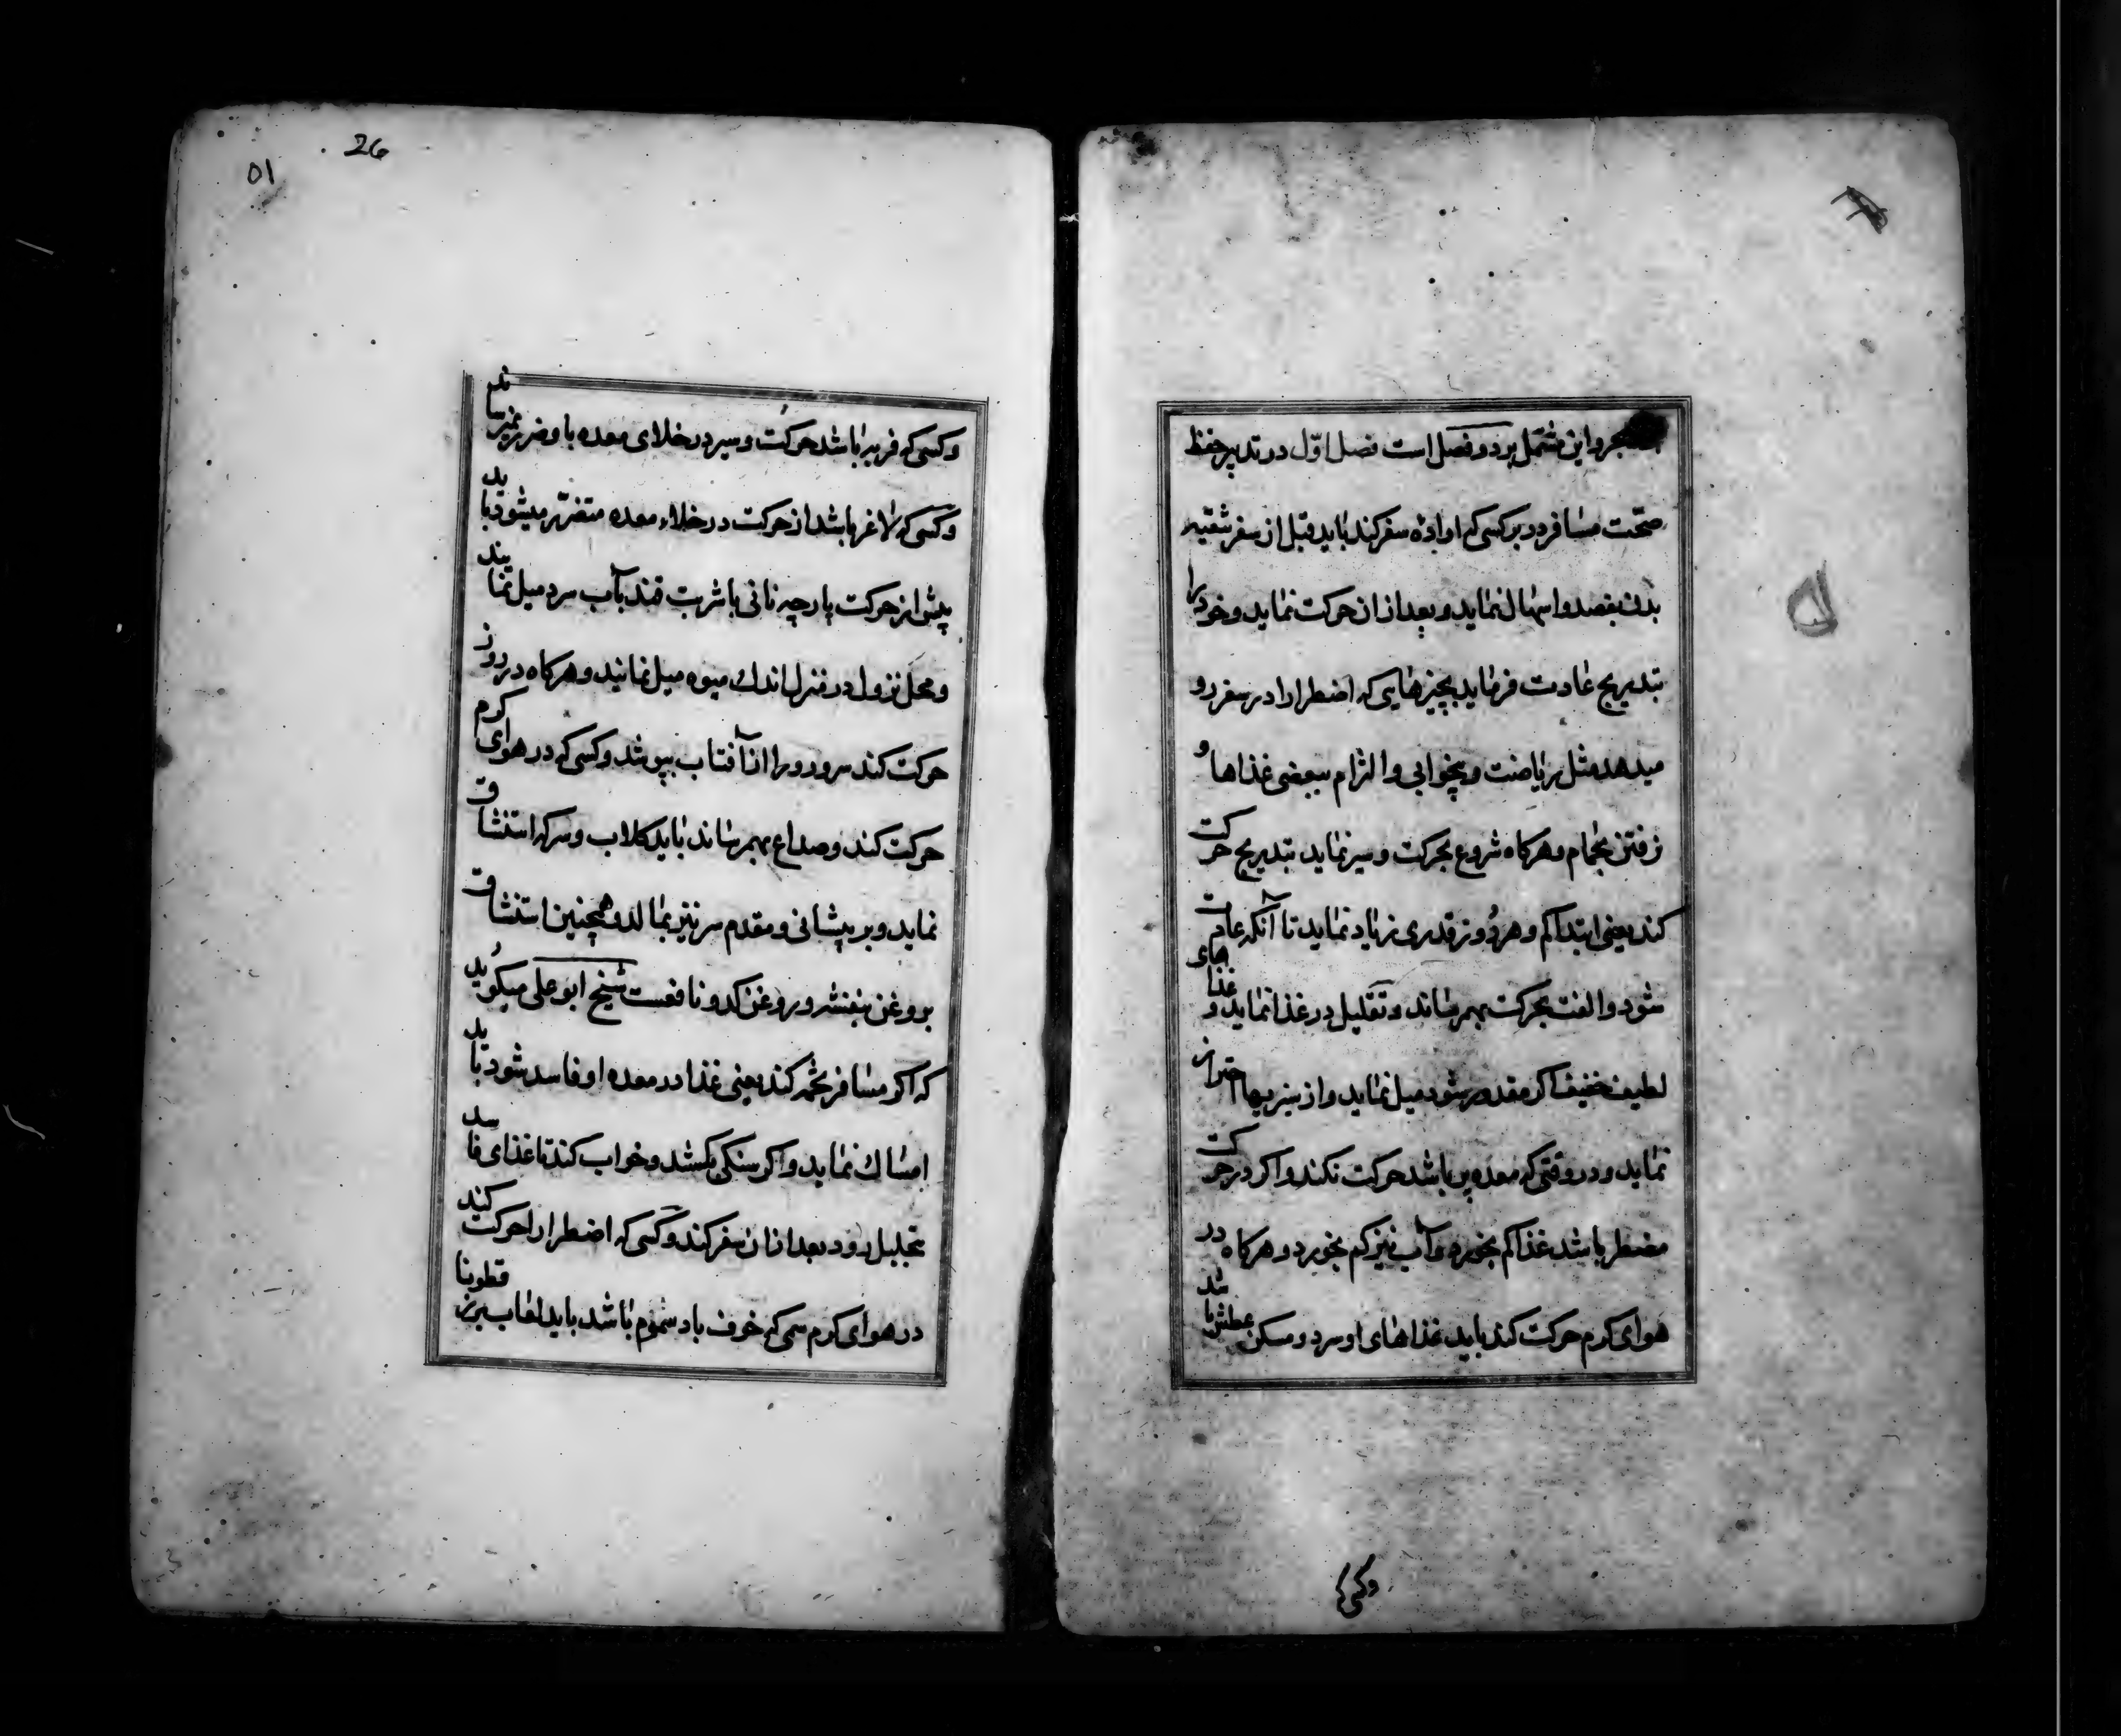 بحر و این مشتمل بر دو فصل است فصل اوّل در تدبیر حفظ
صحّت مسافر در بر کسی که اراده سفر کند باید قبل از سفر بتنقیه
بدن بفصد و اسهال نماید و بعد از ان حرکت نماید و خود را
بتدریج عادت فرماید بچیزهایی که اضطرارا در سفر رو
میدهد مثل ریاضت و بیخوابی و التزام ببعضی غذاها و
رفتن بحمام و هرکاه شروع بحرکت و سیر نماید بتدریج حرکت
کند یعنی ابتدا کم و هر روز قدری زیاد نماید تا آنکه عادت
شود و الفت بحرکت بهمرساند و تقلیل در غذا نماید و غذاهای
لطیف خفیف اکر مقدور شود میل نماید و از سیریها احتراز
نماید و در وقتی که معده پر باشد حرکت نکند و اکر در حرکت
مضطر باشد غذا کم بخورد و آب نیز کم بخورد و هرکاه در
هوای کرم حرکت کند باید غذاهای او سرد و مسکن عطش باشد
وکسی که
26
۵۱
و کسی که فربه باشد حرکت و سیر در خلای معده باو ضرر نمیرساند
و کسی که لاغر باشد از حرکت در خلاء معده متضرّر میشود باید
پیش از حرکت پارچه نانی با شربت قند بآب سرد میل نمایند
و محل نزول در منزل اندك میوه میل نمایند و هرکاه در روز
حرکت کند سر و رو را از آفتاب بپوشد و کسی که در هوای کرم
حرکت کند و صداع بهمرساند باید کلاب و سرکه استنشاق
نماید و بر پیشانی و مقدم سر نیز بمالد و همچنین استنشاق
بروغن بنفشه و روغن کدو نافعست شیخ ابو علی میکوید
که اکر مسافر تخمه کند یعنی غذا در معده او فاسد شود باید
امساك نماید و اکر سنکی بکشد و خواب کند تا غذای فاسد
بتحلیل رود بعد از ان سفر کند و کسی که اضطرارا حرکت کند
در هوای کرم سمی که خوف باد سموم باشد باید لعاب بزر قطونا